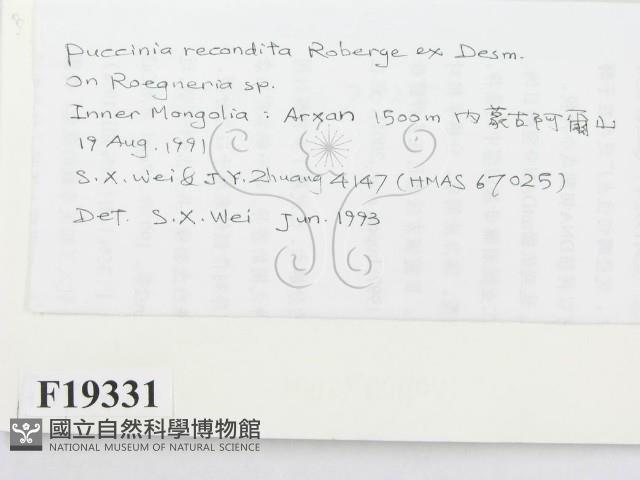 Puccinia recondita Roberge ex Desm.
On Roegneria sp.
Inner Mongolia : Arxan 1500m 內蒙古阿爾山
19 Aug. 1991
S.X. Wei & J.Y. Zhuang 4147 (HMAS 67025)
Det. S.X. Wei Jun. 1993
F19331
國立自然科學博物館
NATIONAL MUSEUM OF NATURAL SCIENCE